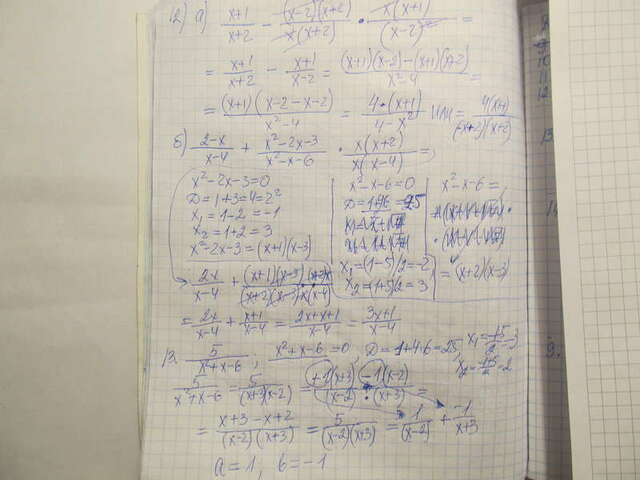 12) a) (x+1)/(x+2) - (x-2)(x+2)/x(x+2) · x(x+1)/(x-2)² =
= (x+1)/(x+2) - (x+1)/(x-2) = ((x+1)(x-2)-(x+1)(x+2))/(x²-4) =
= (x+1)(x-2-x-2)/(x²-4) = 4·(x+1)/(4-x²) или =
б) (2-x)/(x-4) + (x²-2x-3)/(x²-x-6) · x(x+2)/x(x-4) =
x²-2x-3=0
D=1+3=4=2²
x₁=1-2=-1
x₂=1+2=3
x²-2x-3=(x+1)(x-3)
x²-x-6=0
x₁=(1-5)/2=-2
x₂=(1+5)/2=3
x²-x-6=
=(x+2)(x-3)
2x/(x-4) + (x+1)(x-3)
= 2x/(x-4) + (x+1)/(x-4) = (2x+x+1)/(x-4) = (3x+1)/(x-4)
5/(x²+x-6), x²+x-6=0, D=1+4·6=25,
5/(x²+x-6) = 5/(x+3)(x-2) = (+1(x+3) -1(x-2))/(x-2)·(x+3) =
= (x+3-x+2)/(x-2)(x+3) = 5/(x-2)(x+3) = 1/(x-2) + -1/(x+3)
a=1, b=-1